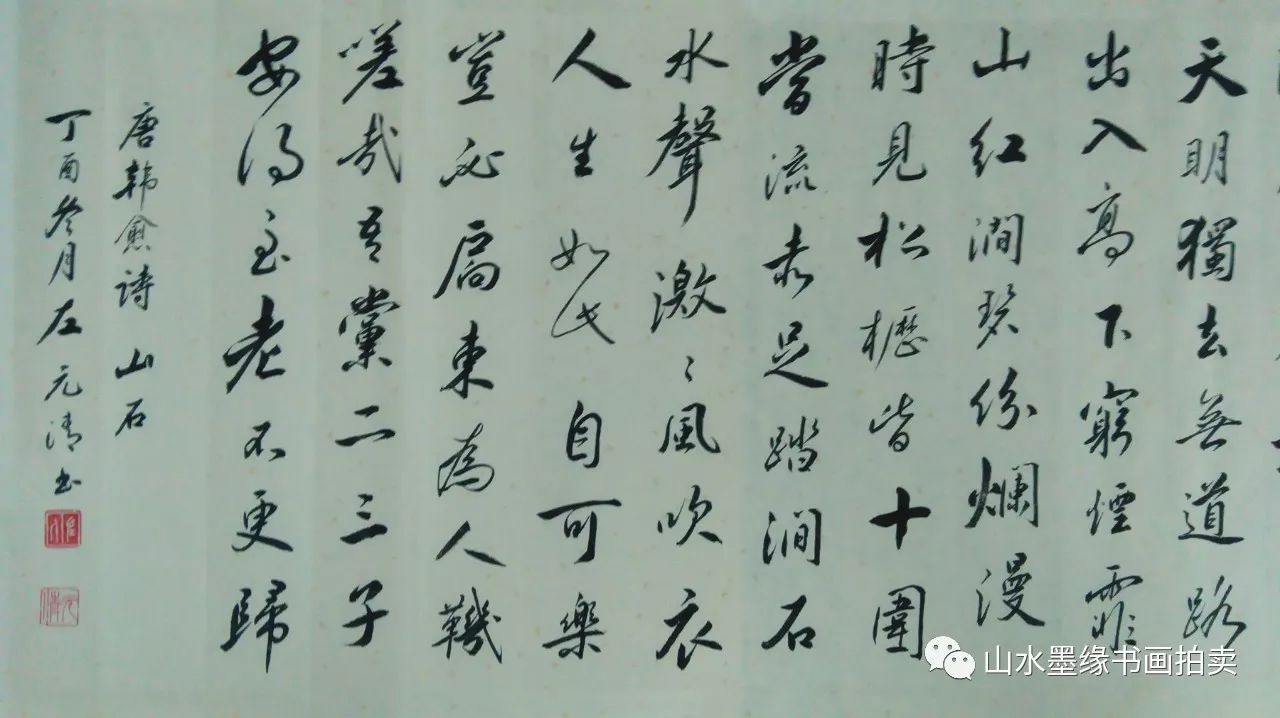 天明獨去無道路
出入高下窮煙霏
山紅澗碧紛爛漫
時見松櫪皆十圍
當流赤足踏澗石
水聲激〻風吹衣
人生如此自可樂
豈必局束為人鞿
嗟哉吾黨二三子
安得至老不更歸
唐韩愈诗 山石
丁酉冬月左元清书
元清
山水墨缘书画拍卖